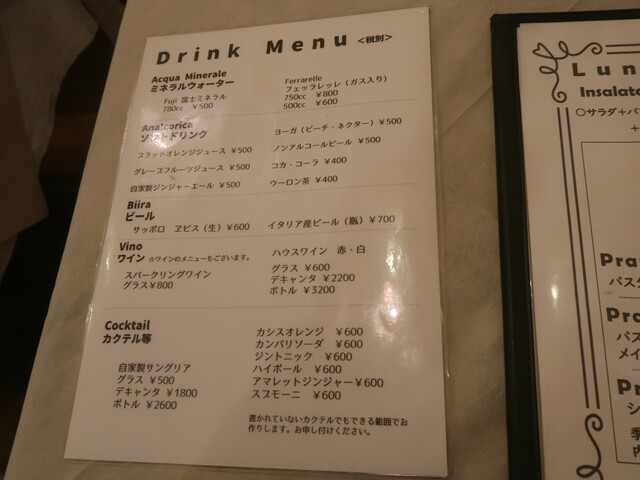 Drink Menu <税別>
Acqua Minerale
ミネラルウォーター
Fuji 富士ミネラル
780cc ¥500
Ferrarelle
フェッラレッレ（ガス入り）
750cc ¥800
500cc ¥600
Analcorica
ソフトドリンク
ブラッドオレンジジュース ¥500
グレープフルーツジュース ¥500
自家製ジンジャーエール ¥500
ヨーガ（ピーチ・ネクター）¥500
ノンアルコールビール ¥500
コカ・コーラ ¥400
ウーロン茶 ¥400
Biira
ビール
サッポロ ヱビス（生）¥600
イタリア産ビール（瓶）¥700
Vino
ワイン ☆ワインのメニューもございます。
スパークリングワイン
グラス¥800
ハウスワイン 赤・白
グラス ¥600
デキャンタ ¥2200
ボトル ¥3200
Cocktail
カクテル等
自家製サングリア
グラス ¥500
デキャンタ ¥1800
ボトル ¥2600
カシスオレンジ ¥600
カンパリソーダ ¥600
ジントニック ¥600
ハイボール ¥600
アマレットジンジャー¥600
スプモーニ ¥600
書かれていないカクテルでもできる範囲でお
作りします。お申し付けください。
Lun
Insalata
○サラダ+パ
+
Pra
パスタ
Pra
パス
メイ
Pr
シ
季
内